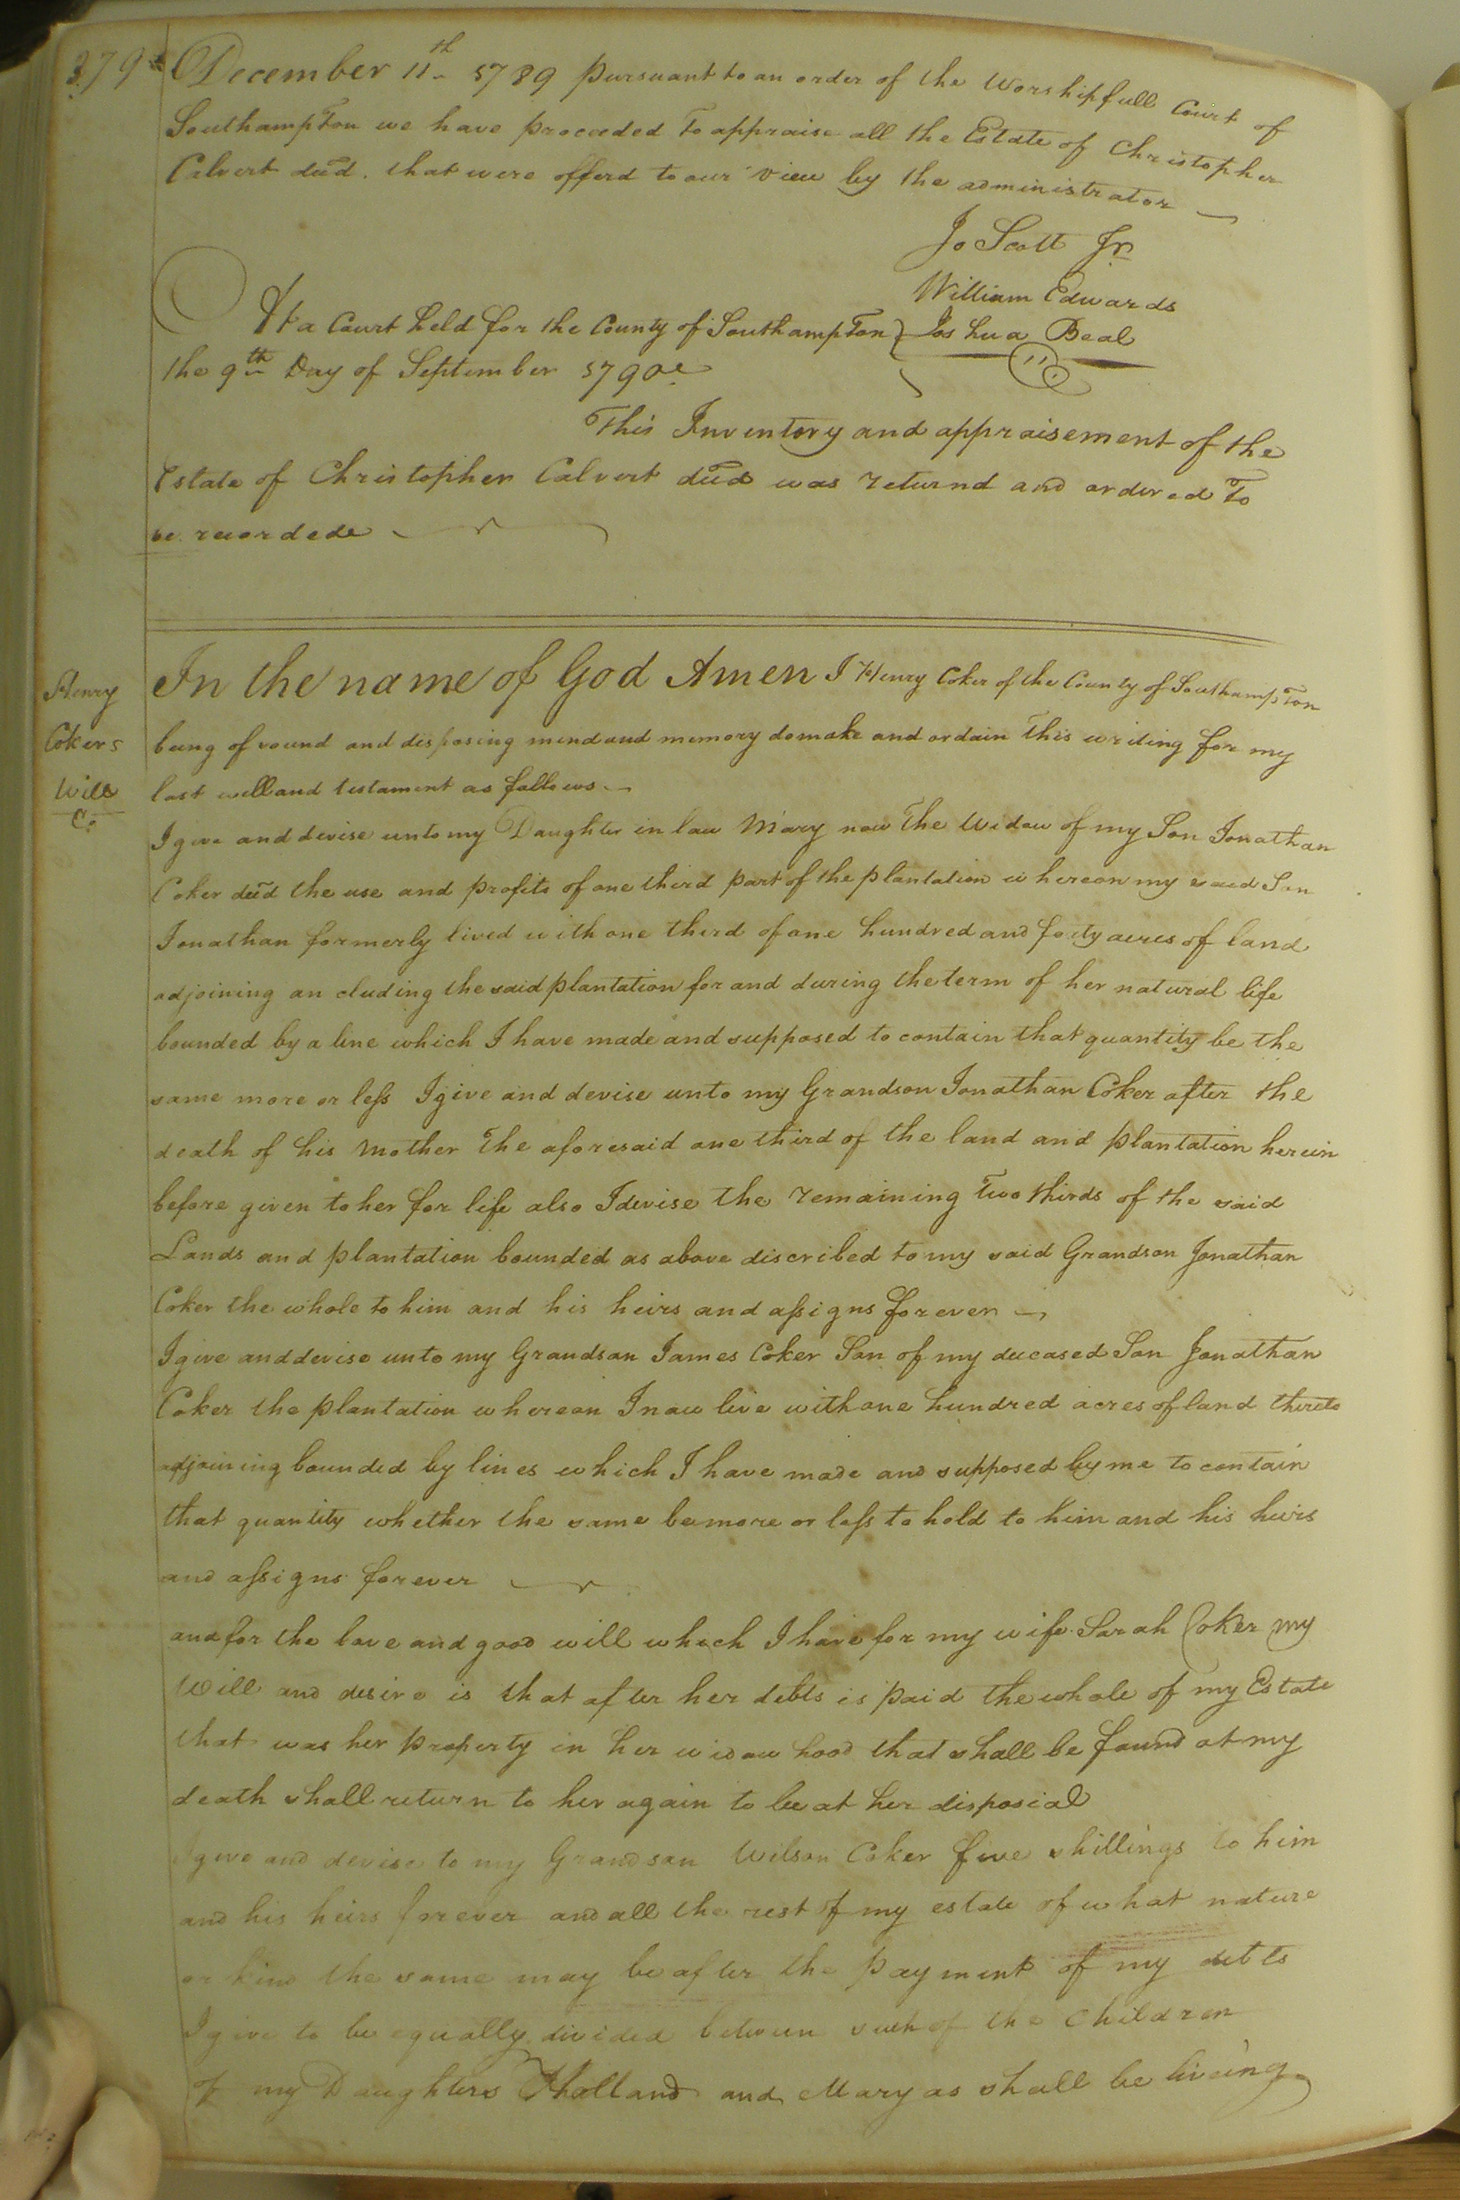 379
December 11th 1789 pursuant to an order of the Worshipfull Court of
Southampton we have proceeded to appraise all the Estate of Christopher
Calvert decd. that were offerd to our view by the administrator
Jo Scott Jr
William Edwards
Joshua Beal
At a Court held for the County of Southampton
the 9th Day of September 1790
This Inventory and appraisement of the
Estate of Christopher Calvert decd was returnd and ordered to
be recorded
Henry
Cokers
Will
In the name of God Amen I Henry Coker of the County of Southampton
being of sound and disposing mind and memory do make and ordain this writing for my
last will and testament as follows
I give and devise unto my Daughter in law Mary now the Widow of my Son Jonathan
Coker decd the use and profits of one third part of the plantation whereon my said Son
Jonathan formerly lived with one third of one hundred and forty acres of land
adjoining an cluding the said plantation for and during the term of her natural life
bounded by a line which I have made and supposed to contain that quantity be the
same more or less I give and devise unto my Grandson Jonathan Coker after the
death of his Mother the aforesaid one third of the land and plantation herein
before given to her for life also I devise the remaining Two thirds of the said
Lands and plantation bounded as above discribed to my said Grandson Jonathan
Coker the whole to him and his heirs and assigns forever
I give and devise unto my Grandson James Coker Son of my deceased Son Jonathan
Coker the plantation whereon I now live with one hundred acres of land thereto
adjoining bounded by lines which I have made and supposed by me to contain
that quantity whether the same be more or less to hold to him and his heirs
and assigns forever
and for the love and good will which I have for my wife Sarah Coker my
Will and desire is that after her debts is paid the whole of my Estate
that was her property in her widow hood that shall be found at my
death shall return to her again to be at her disposial
I give and devise to my Grandson Wilson Coker five shillings to him
and his heirs forever and all the rest of my estate of what nature
or kind the same may be after the payment of my debts
I give to be equally divided between such of the Children
of my Daughters Holland and Mary as shall be living